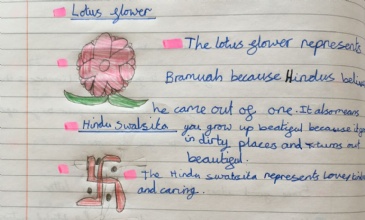 Lotus flower
The lotus flower represents
Bramuah because Hindus belie
he came out of one. It also means
Hindu Swatsika you grow up beatigul because it g
in dirty places and turns out
beautigul.
The Hindu swatsika represents Love, kind
and caring.